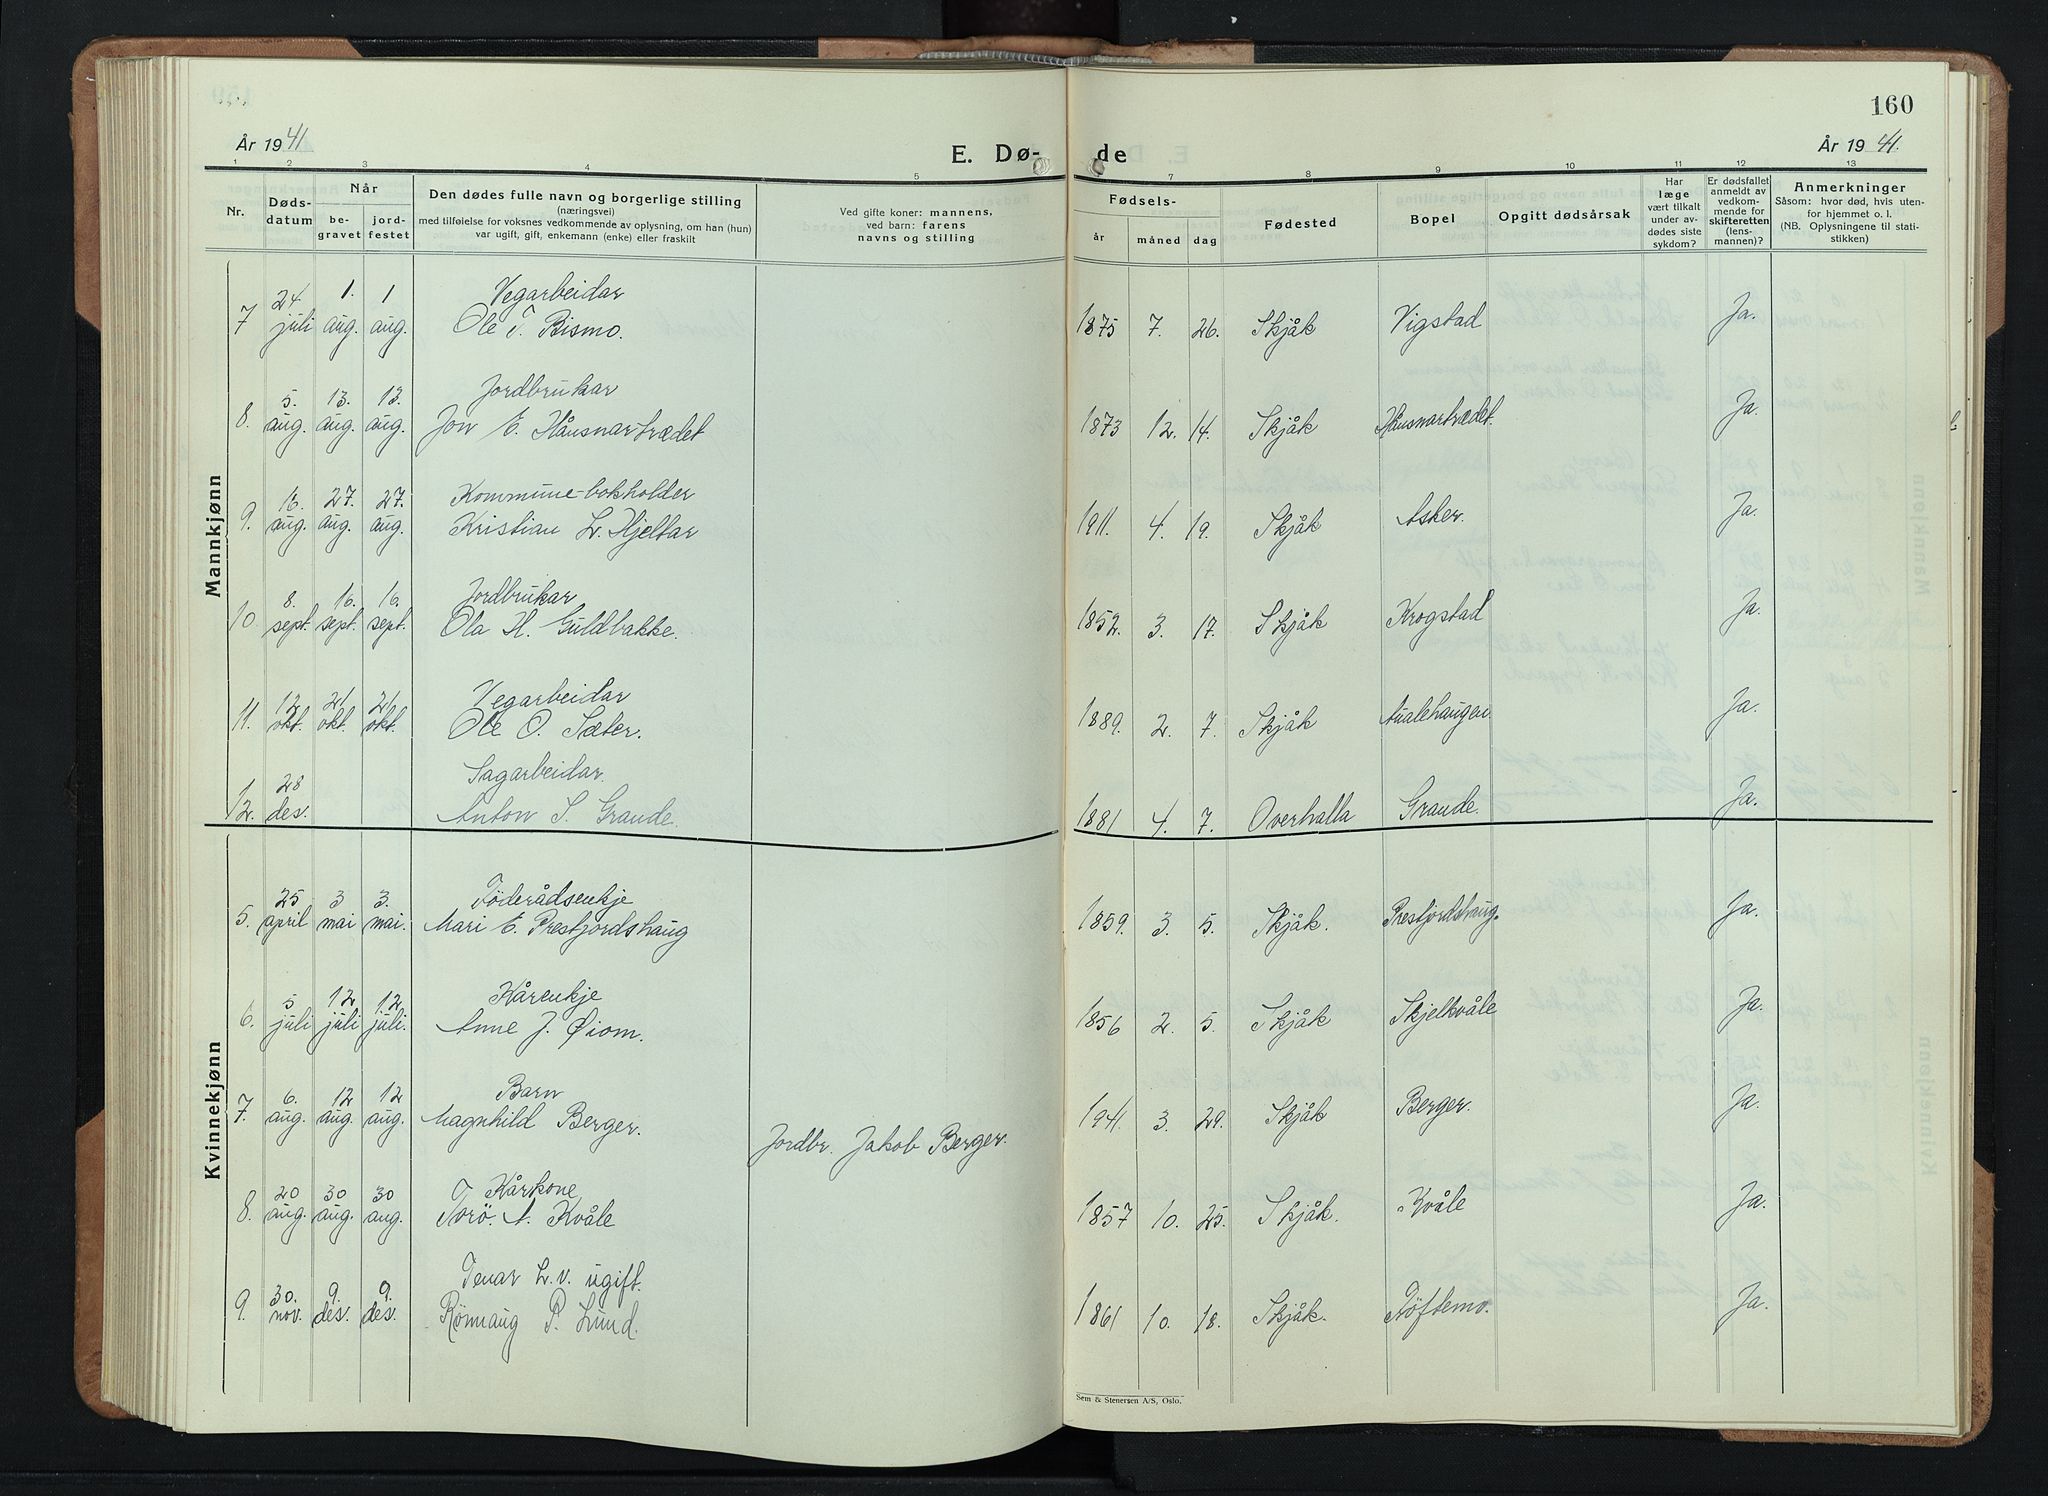 160
År 1941
E. Dø-
de
År 1941.
1 2 3 4 5
7 8 9 10 11 12 13
Nr.
Døds-
datum
Når
be-
gravet
jord-
festet
Den dødes fulle navn og borgerlige stilling
(næringsvei)
med tilføielse for voksnes vedkommende av oplysning, om han (hun)
var ugift, gift, enkemann (enke) eller fraskilt
Ved gifte koner: mannens,
ved barn: farens
navns og stilling
Fødsels-
år måned dag
Fødested
Bopel
Opgitt dødsårsak
Har
læge
vært tilkalt
under av-
dødes siste
sykdom?
Er dødsfallet
anmeldt av
vedkom-
mende for
skifteretten
(lens-
mannen)?
Anmerkninger
Såsom: hvor død, hvis uten-
for hjemmet o. l.
(NB. Oplysningene til stati-
stikken)
Mannkjønn
24. 1. 1 Vegarbeidar
7 juli aug. aug. Ole T. Bismo. 1875 7. 26. Skjåk Vigstad Ja.
5. 13. 13. Jordbrukar
8. aug. aug. aug. Jon E. Håusnartrædet 1873 12. 14. Skjåk Håusnartrædet. Ja.
16. 27. 27. Kommune-bokholder
9. aug. aug. aug. Kristian L. Hjeltar 1911. 4. 19. Skjåk Asker. Ja.
8. 16. 16. Jordbrukar
10. sept. sept. sept. Ola H. Guldbakke. 1852. 3. 17. Skjåk Krogstad Ja.
12. 21. 21. Vegarbeidar
11. okt. okt. okt. Ole O. Sæter. 1889. 2. 7. Skjåk Aualehaugen Ja.
28 Sagarbeidar.
12. des. Anton S. Grande. 1881 4. 7. Overhalla Grande. Ja.
Kvinnekjønn
25 3 3. Föderådsenkje
5. april mai mai. Mari E. Prestjordshaug 1859. 3. 5. Skjåk. Prestjordshaug. Ja.
5 12 12. Kårenkje
6. juli juli juli. Anne J. Øiom. 1856 2. 5. Skjåk Skjelkvåle Ja.
6. 12 12 Barn
7. aug. aug. aug. Magnhild Berger. Jordbr. Jakob Berger. 1941. 3. 29. Skjåk Berger. Ja.
20 30 30 Kårkone
8. aug. aug. aug. Torö. A. Kvåle 1857 10. 25. Skjåk. Kvåle Ja.
30. 9. 9. Tenar L.v. ugift.
9. nov. des. des. Rönnaug P. Lund. 1861 10. 18. Skjåk. Töftemo. Ja.
Sem & Stenersen A/S, Oslo.